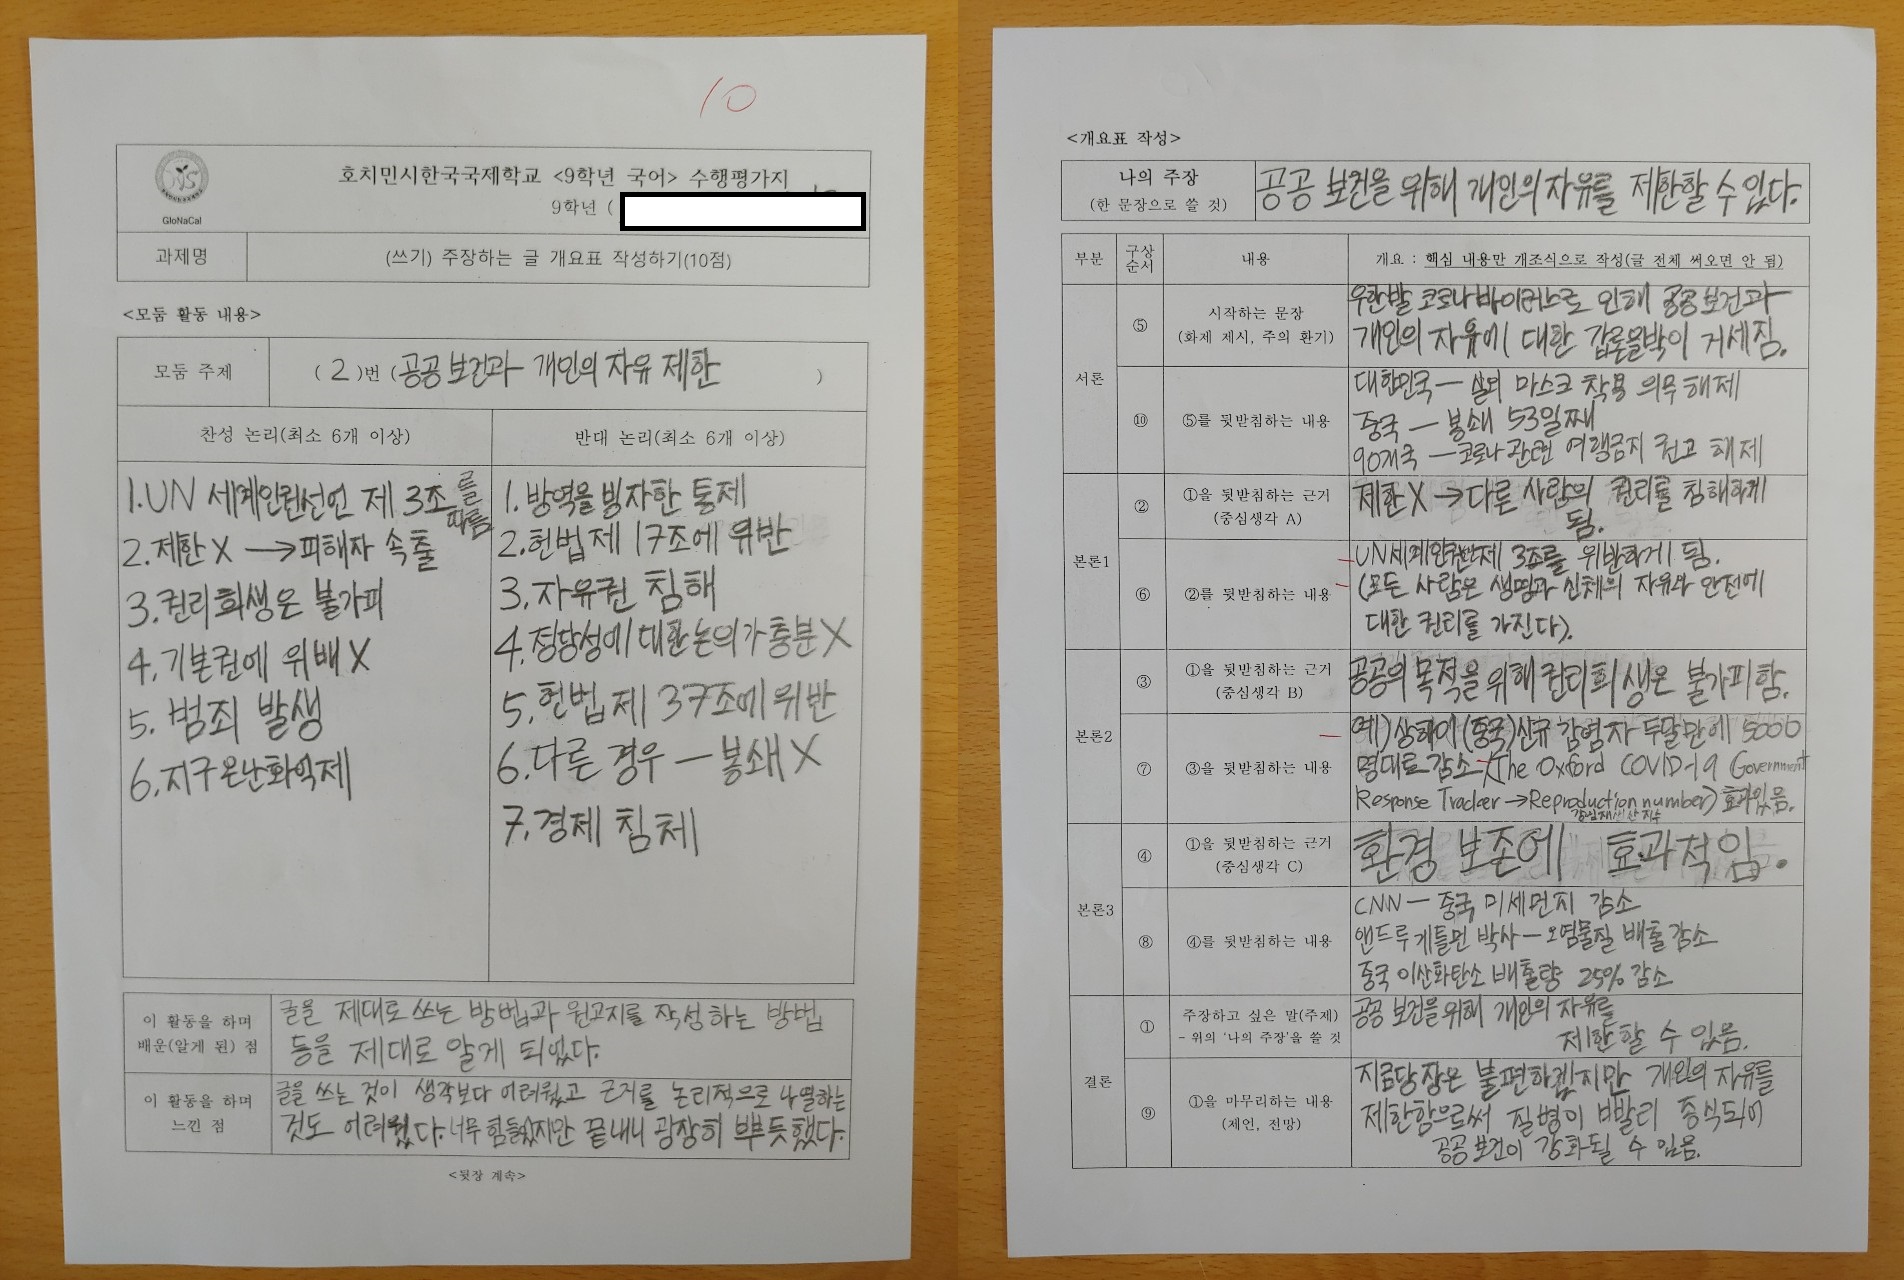 10
호치민시한국국제학교 <9학년 국어> 수행평가지
9학년 (
GloNaCal
과제명
(쓰기) 주장하는 글 개요표 작성하기(10점)
<모둠 활동 내용>
모둠 주제
( 2 )번 (공공 보건과 개인의 자유 제한 )
찬성 논리(최소 6개 이상)
반대 논리(최소 6개 이상)
1. UN 세계인권선언 제 3조를 따름
2. 제한 X → 피해자 속출
3. 권리 희생은 불가피
4. 기본권에 위배 X
5. 범죄 발생
6. 지구온난화 억제
1. 방역을 빙자한 통제
2. 헌법 제 17조에 위반
3. 자유권 침해
4. 정당성에 대한 논의가 충분 X
5. 헌법 제 37조에 위반
6. 다른 경우 - 봉쇄 X
7. 경제 침체
이 활동을 하며
배운(알게 된) 점
글을 제대로 쓰는 방법과 원고지를 작성하는 방법
등을 제대로 알게 되었다.
이 활동을 하며
느낀 점
글을 쓰는 것이 생각보다 어려웠고 근거를 논리적으로 나열하는
것도 어려웠다. 너무 힘들었지만 끝내니 굉장히 뿌듯했다.
<뒷장 계속>
<개요표 작성>
나의 주장
(한 문장으로 쓸 것)
공공 보건을 위해 개인의 자유를 제한할 수 있다.
부분
구상
순서
내용
개요 : 핵심 내용만 개조식으로 작성(글 전체 써오면 안 됨)
서론
⑤
시작하는 문장
(화제 제시, 주의 환기)
우한발 코로나바이러스로 인해 공공보건과
개인의 자유에 대한 갑론을박이 거세짐.
⑩
⑤를 뒷받침하는 내용
대한민국 - 실외 마스크 착용 의무 해제
중국 - 봉쇄 53일째
90개국 - 코로나 관련 여행금지 권고 해제
본론1
②
①을 뒷받침하는 근거
(중심생각 A)
제한 X → 다른 사람의 권리를 침해하게
됨.
⑥
②를 뒷받침하는 내용
UN세계인권선언 제 3조를 위반하게 됨.
(모든 사람은 생명과 신체의 자유와 안전에
대한 권리를 가진다).
본론2
③
①을 뒷받침하는 근거
(중심생각 B)
공공의 목적을 위해 권리 희생은 불가피함.
⑦
③을 뒷받침하는 내용
예) 상하이(중국) 신규 감염자 두달만에 5000
명대로 감소 (The Oxford COVID-19 Government
Response Tracker → Reproduction number) 효과있음.
감염재생산지수
본론3
④
①을 뒷받침하는 근거
(중심생각 C)
환경 보존에 효과적임.
⑧
④를 뒷받침하는 내용
CNN - 중국 미세먼지 감소
앤드루 게틀먼 박사 - 오염물질 배출 감소
중국 이산화탄소 배출량 25% 감소
결론
①
주장하고 싶은 말(주제)
- 위의 '나의 주장'을 쓸 것
공공 보건을 위해 개인의 자유를
제한할 수 있음.
⑨
①을 마무리하는 내용
(제언, 전망)
지금당장은 불편하겠지만 개인의 자유를
제한함으로써 질병이 빨리 종식되어
공공 보건이 강화될 수 있음.